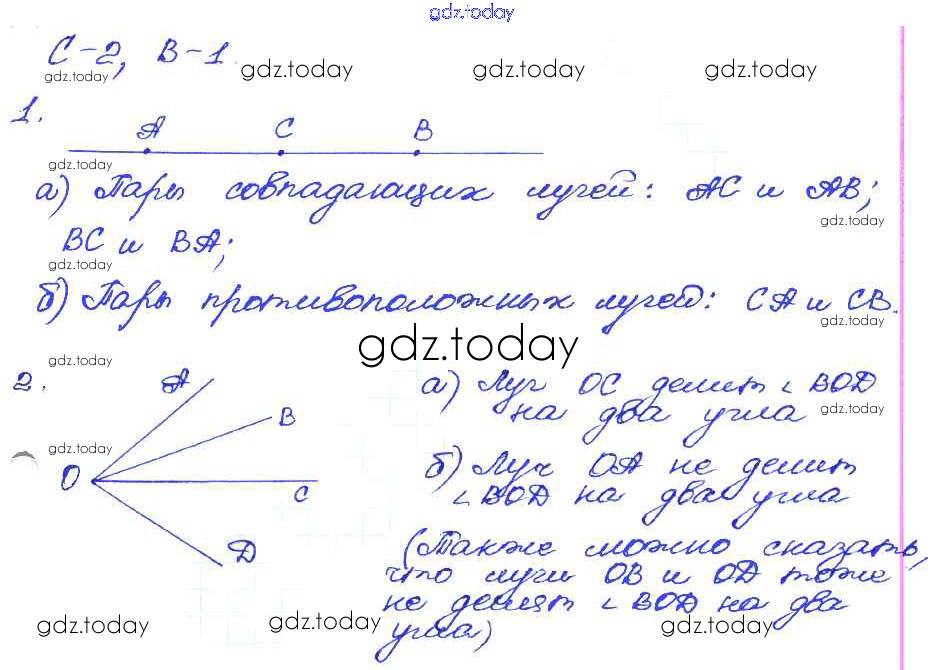 gdz.today
С-2, В-1.
gdz.today gdz.today gdz.today gdz.today
1.
A C B
gdz.today
а) Пары совпадающих лучей: AC и AB;
gdz.today
BC и BA;
gdz.today
б) Пары противоположных лучей: CA и CB.
gdz.today
gdz.today
gdz.today
2.
A
B
O
C
D
gdz.today
а) Луч OC делит ∠ BOD
на два угла
gdz.today
б) Луч OA не делит
∠ BOD на два угла
(Также можно сказать,
что лучи OB и OD тоже
не делят ∠ BOD на два
угла)
gdz.today gdz.today gdz.today